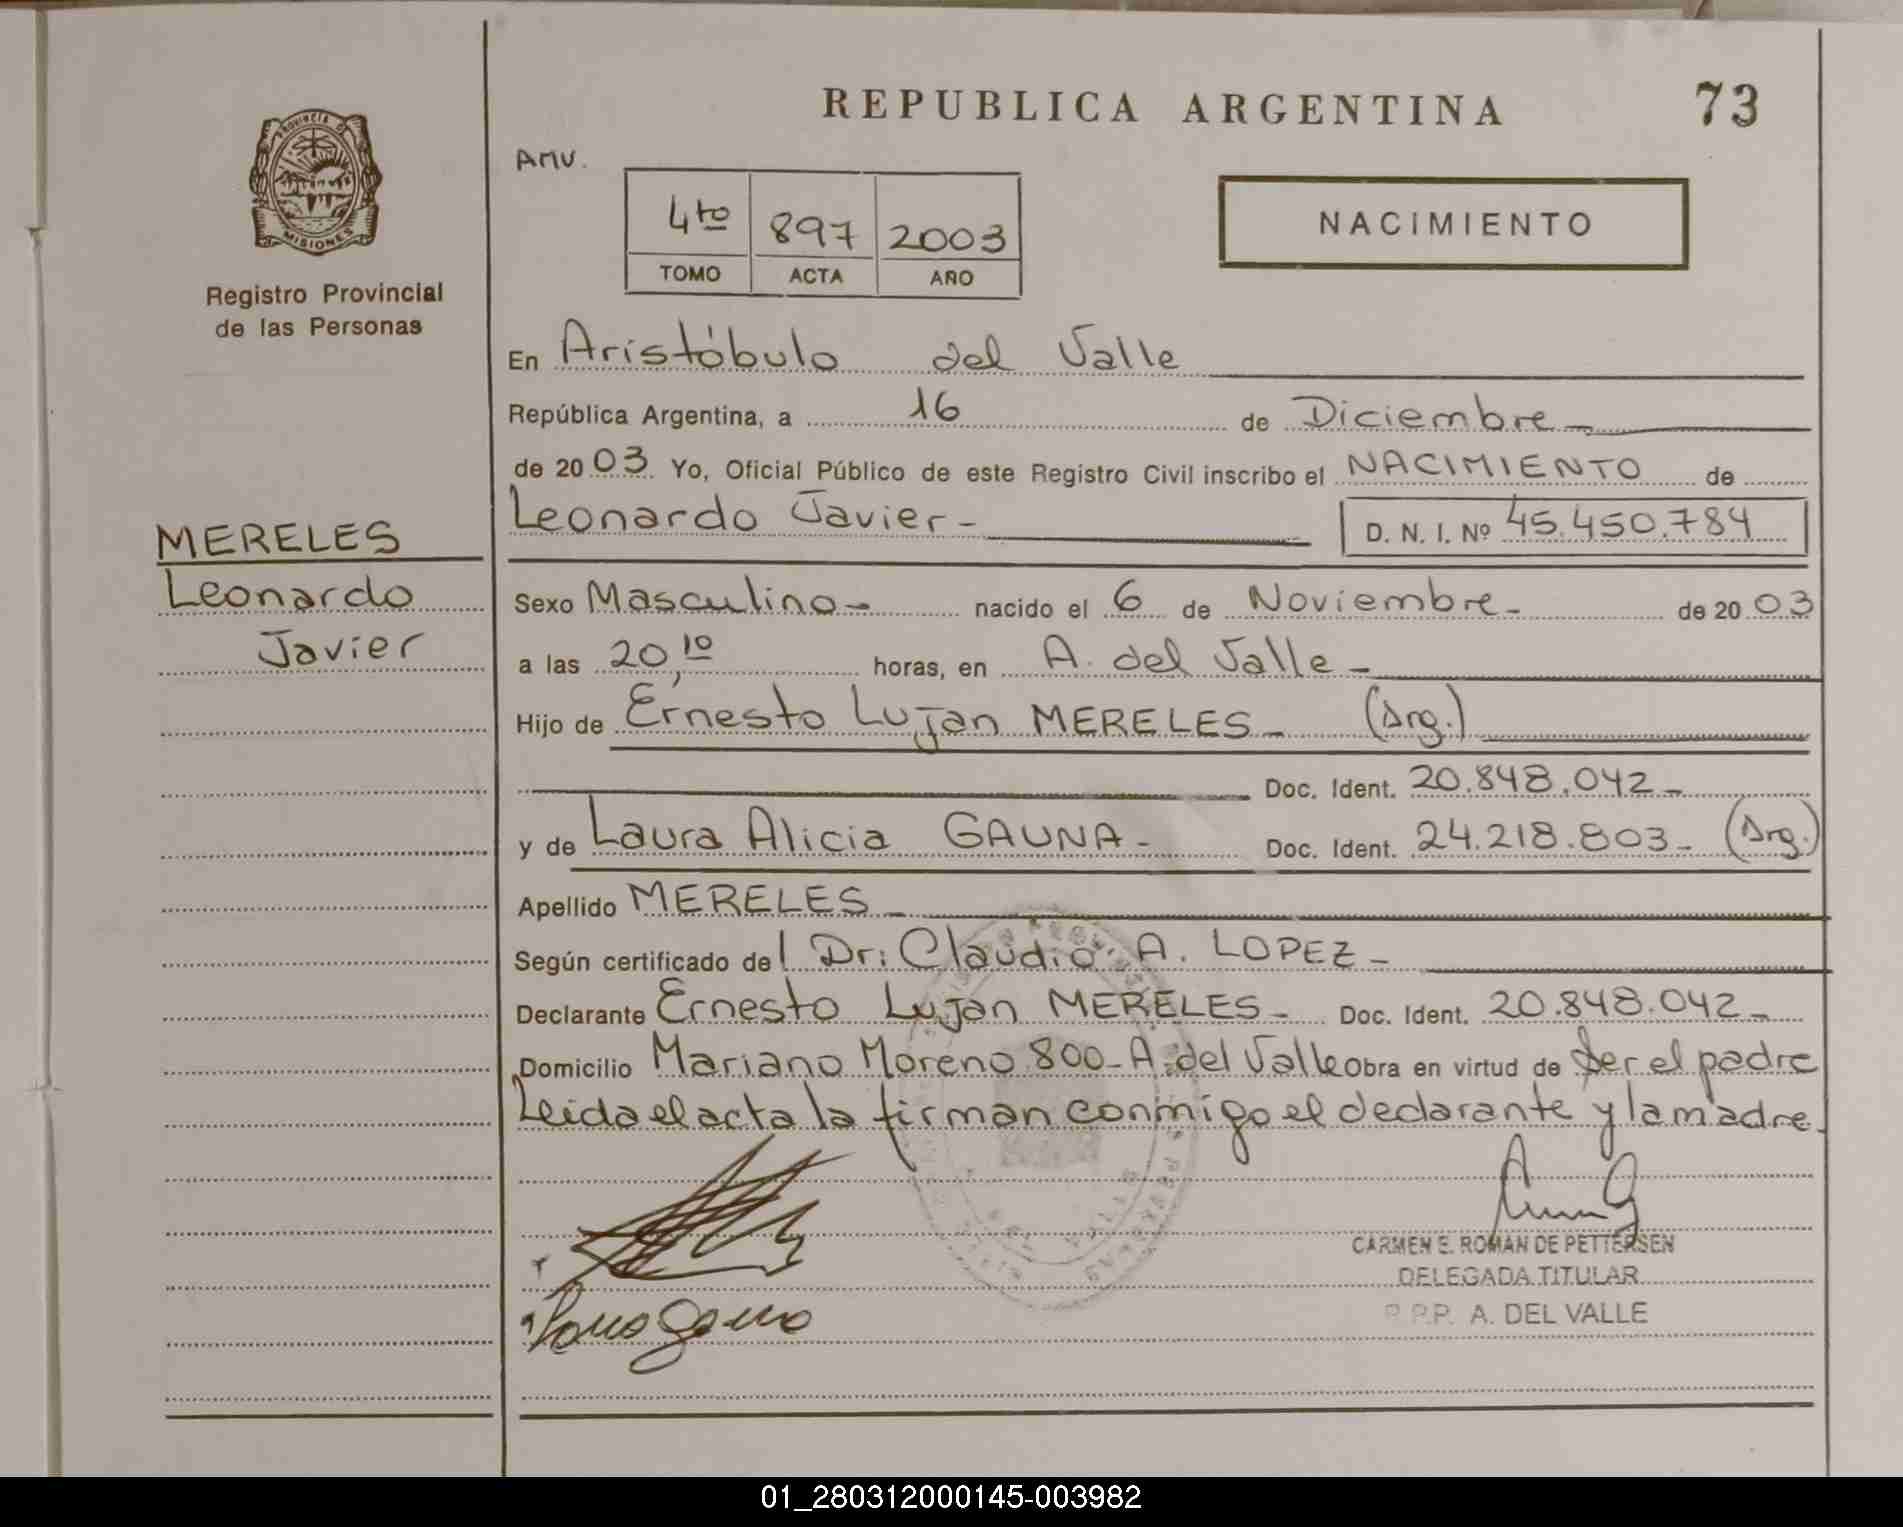 REPUBLICA ARGENTINA 73
PROVINCIA D
MISIONES
Registro Provincial
de las Personas
AMV.
4to 897 2003
TOMO ACTA AÑO
NACIMIENTO
En Aristóbulo del Valle
República Argentina, a 16 de Diciembre
de 2003. Yo, Oficial Público de este Registro Civil inscribo el NACIMIENTO de
Leonardo Javier - D. N. I. Nº 45.450.784
MERELES
Leonardo
Javier
Sexo Masculino - nacido el 6 de Noviembre - de 2003
a las 20,10 horas, en A. del Valle -
Hijo de Ernesto Lujan MERELES - (Arg.)
Doc. Ident. 20.848.042 -
y de Laura Alicia GAUNA - Doc. Ident. 24.218.803 - (Arg.)
Apellido MERELES -
Según certificado del Dr: Claudio A. LOPEZ -
Declarante Ernesto Lujan MERELES - Doc. Ident. 20.848.042 -
Domicilio Mariano Moreno 800 - A. del Valle Obra en virtud de ser el padre
Leida el acta la firman conmigo el declarante y la madre.
CARMEN E. ROMAN DE PETTERSEN
DELEGADA TITULAR
R.P.P. A. DEL VALLE
01_280312000145-003982